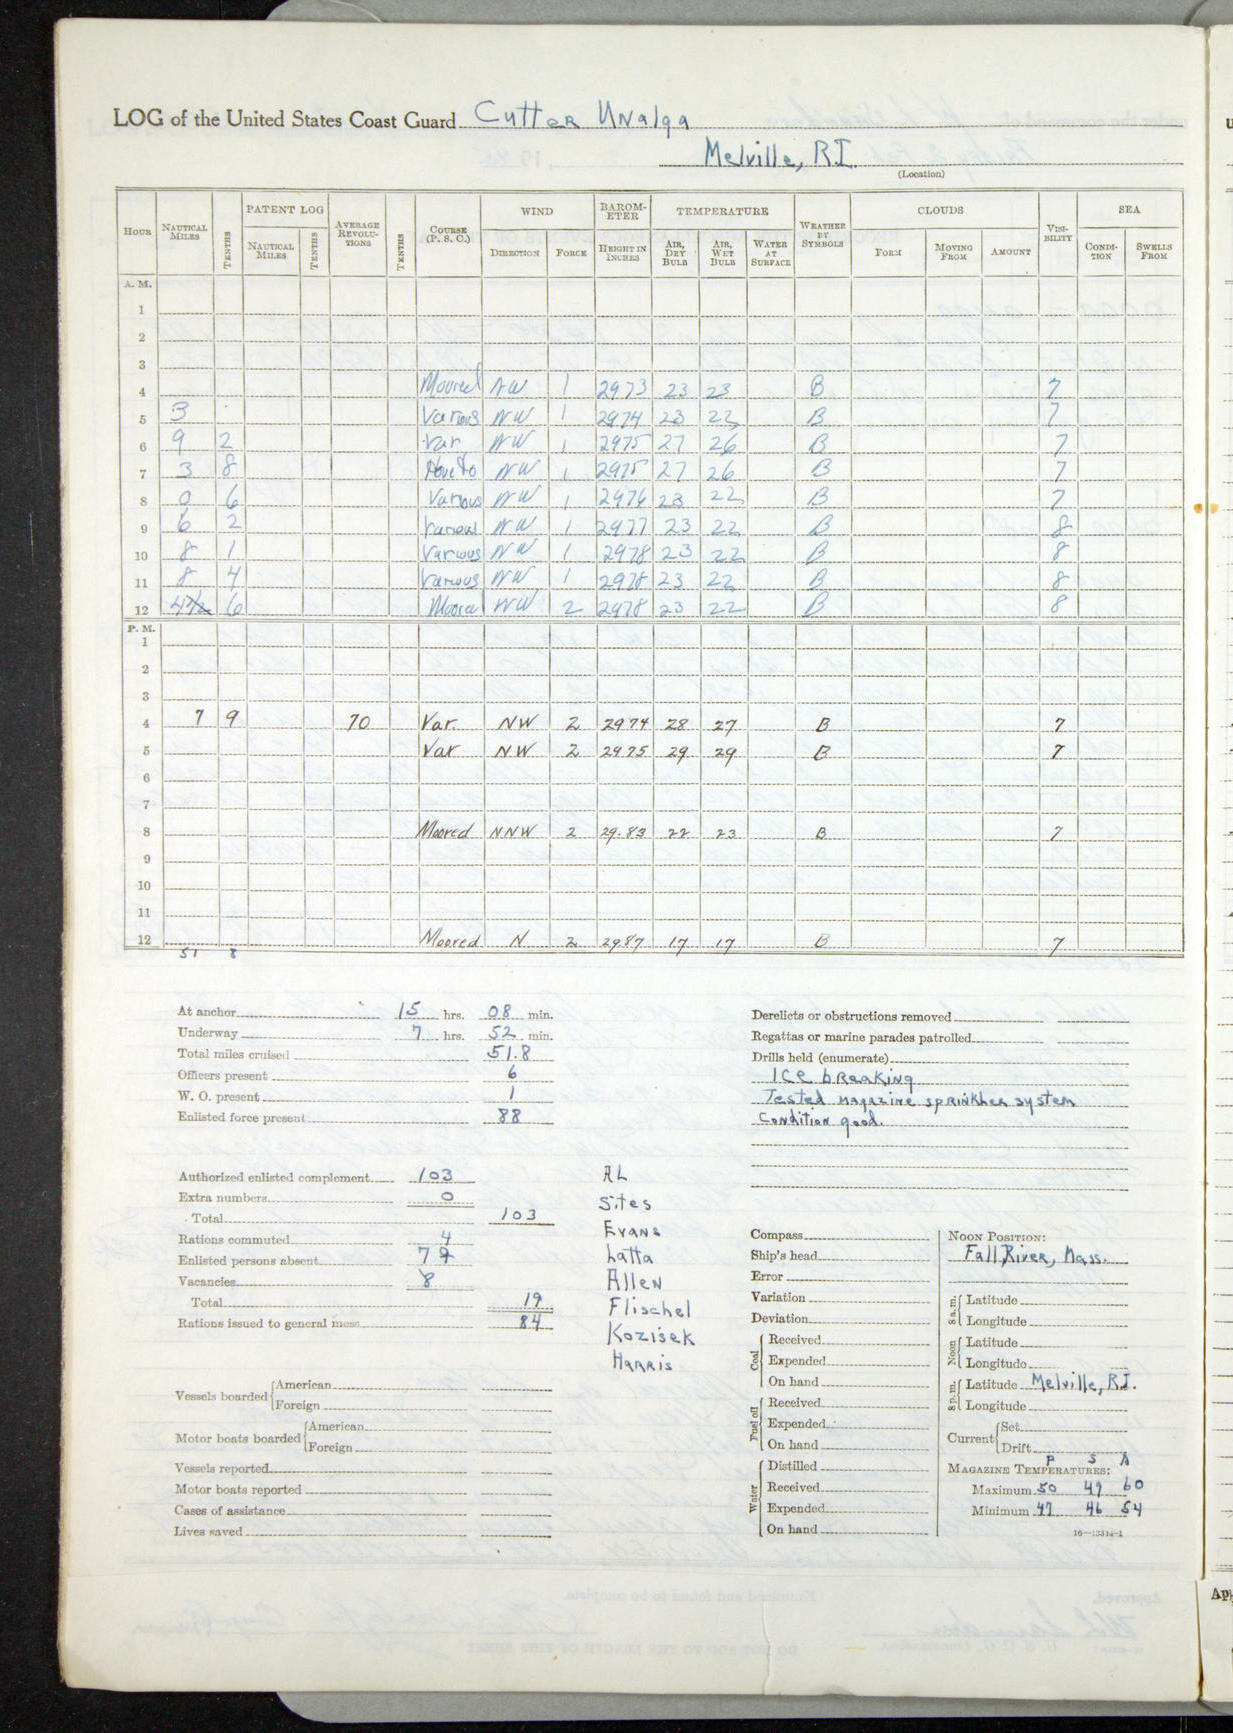 LOG of the United States Coast Guard Cutter Unalga
Melville, R.I.
(Location)
HOUR NAUTICAL MILES TENTHS PATENT LOG AVERAGE REVOLUTIONS TENTHS COURSE (P. S. C.) WIND BAROMETER TEMPERATURE WEATHER BY SYMBOLS CLOUDS VISIBILITY SEA
NAUTICAL MILES TENTHS DIRECTION FORCE HEIGHT IN INCHES AIR, DRY BULB AIR, WET BULB WATER AT SURFACE FORM MOVING FROM AMOUNT CONDITION SWELLS FROM
A. M.
1
2
3
4 Moored NW 1 2973 23 23 B 7
5 3 Various NW 1 2974 23 22 B 7
6 9 2 Var NW 1 2975 27 26 B 7
7 3 8 Hove to NW 1 2975 27 26 B 7
8 0 6 Various NW 1 2976 23 22 B 7
9 6 2 Various NW 1 2977 23 22 B 8
10 8 1 Various NW 1 2978 23 22 B 8
11 8 4 Various NW 1 2978 23 22 B 8
12 4 6 Moored NW 2 2978 23 22 B 8
P. M.
1
2
3
4 7 9 70 Var. NW 2 2974 28 27 B 7
5 Var NW 2 2975 29 29 B 7
6
7
8 Moored NNW 2 29.83 22 23 B 7
9
10
11
12 Moored N 2 2987 17 17 B 7
51 8
At anchor 15 hrs. 08 min.
Underway 7 hrs. 52 min.
Total miles cruised 51.8
Officers present 6
W. O. present 1
Enlisted force present 88
Derelicts or obstructions removed
Regattas or marine parades patrolled
Drills held (enumerate)
Ice breaking
Tested magazine sprinkler system
Condition good.
Authorized enlisted complement 103
Extra numbers 0
Total 103
Rations commuted 4
Enlisted persons absent 7
Vacancies 8
Total 19
Rations issued to general mess 84
AL
Sites
Evans
Latta
Allen
Flischel
Kozisek
Harris
Vessels boarded American
Foreign
Motor boats boarded American
Foreign
Vessels reported
Motor boats reported
Cases of assistance
Lives saved
Compass
Ship's head
Error
Variation
Deviation
Coal Received
Expended
On hand
Fuel oil Received
Expended
On hand
Water Distilled
Received
Expended
On hand
NOON POSITION:
Fall River, Mass.
8 a. m. Latitude
Longitude
Noon Latitude
Longitude
8 p. m. Latitude Melville, R.I.
Longitude
Current Set
Drift
P S A
MAGAZINE TEMPERATURES:
Maximum 50 49 60
Minimum 47 46 54